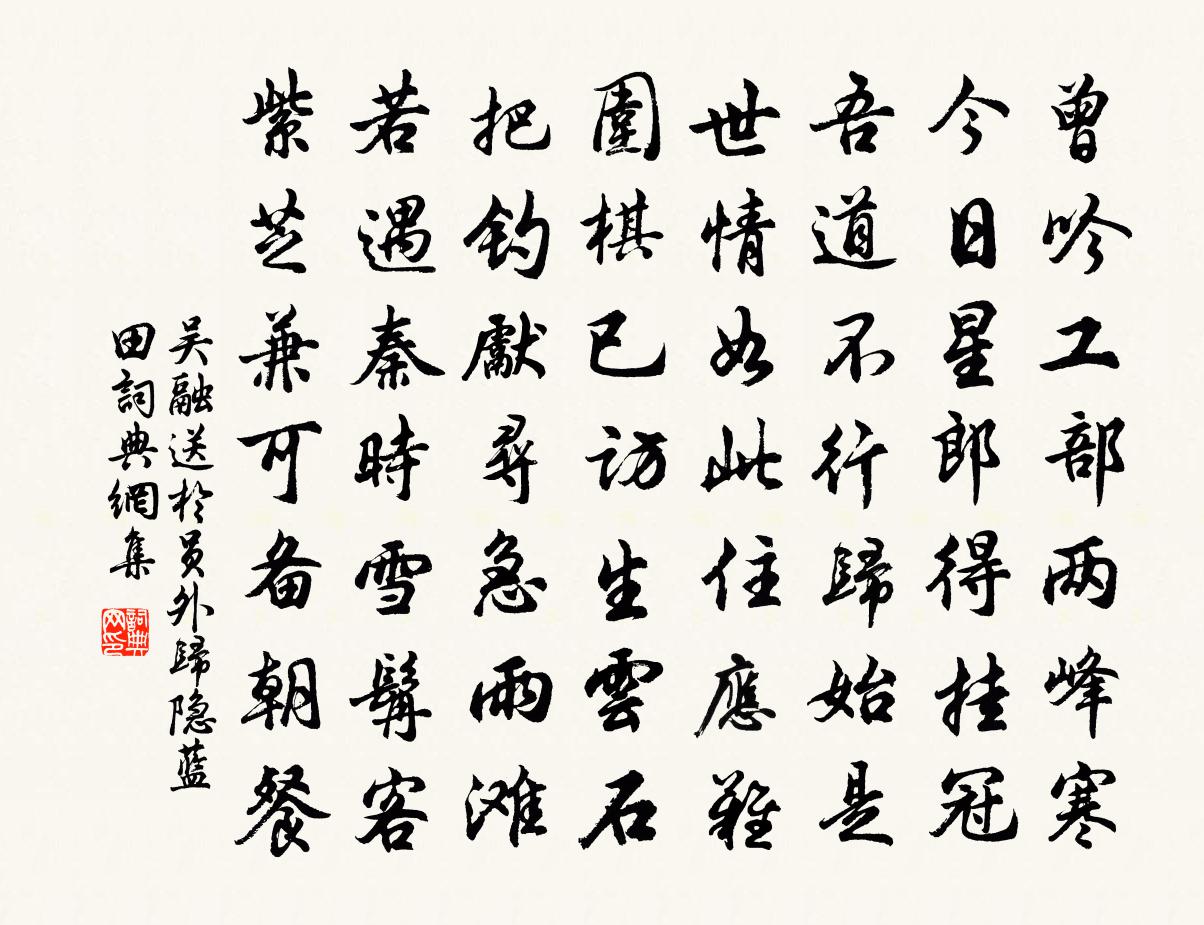 曾吟工部两峰寒
今日星郎得挂冠
吾道不行歸始是
世情如此住應難
圍棋已訪生雲石
把钓獻尋急雨滩
若遇秦時雪髯客
紫芝兼可备朝餐
吴融送於员外歸隐蓝
田詞典網集
詞典
网印